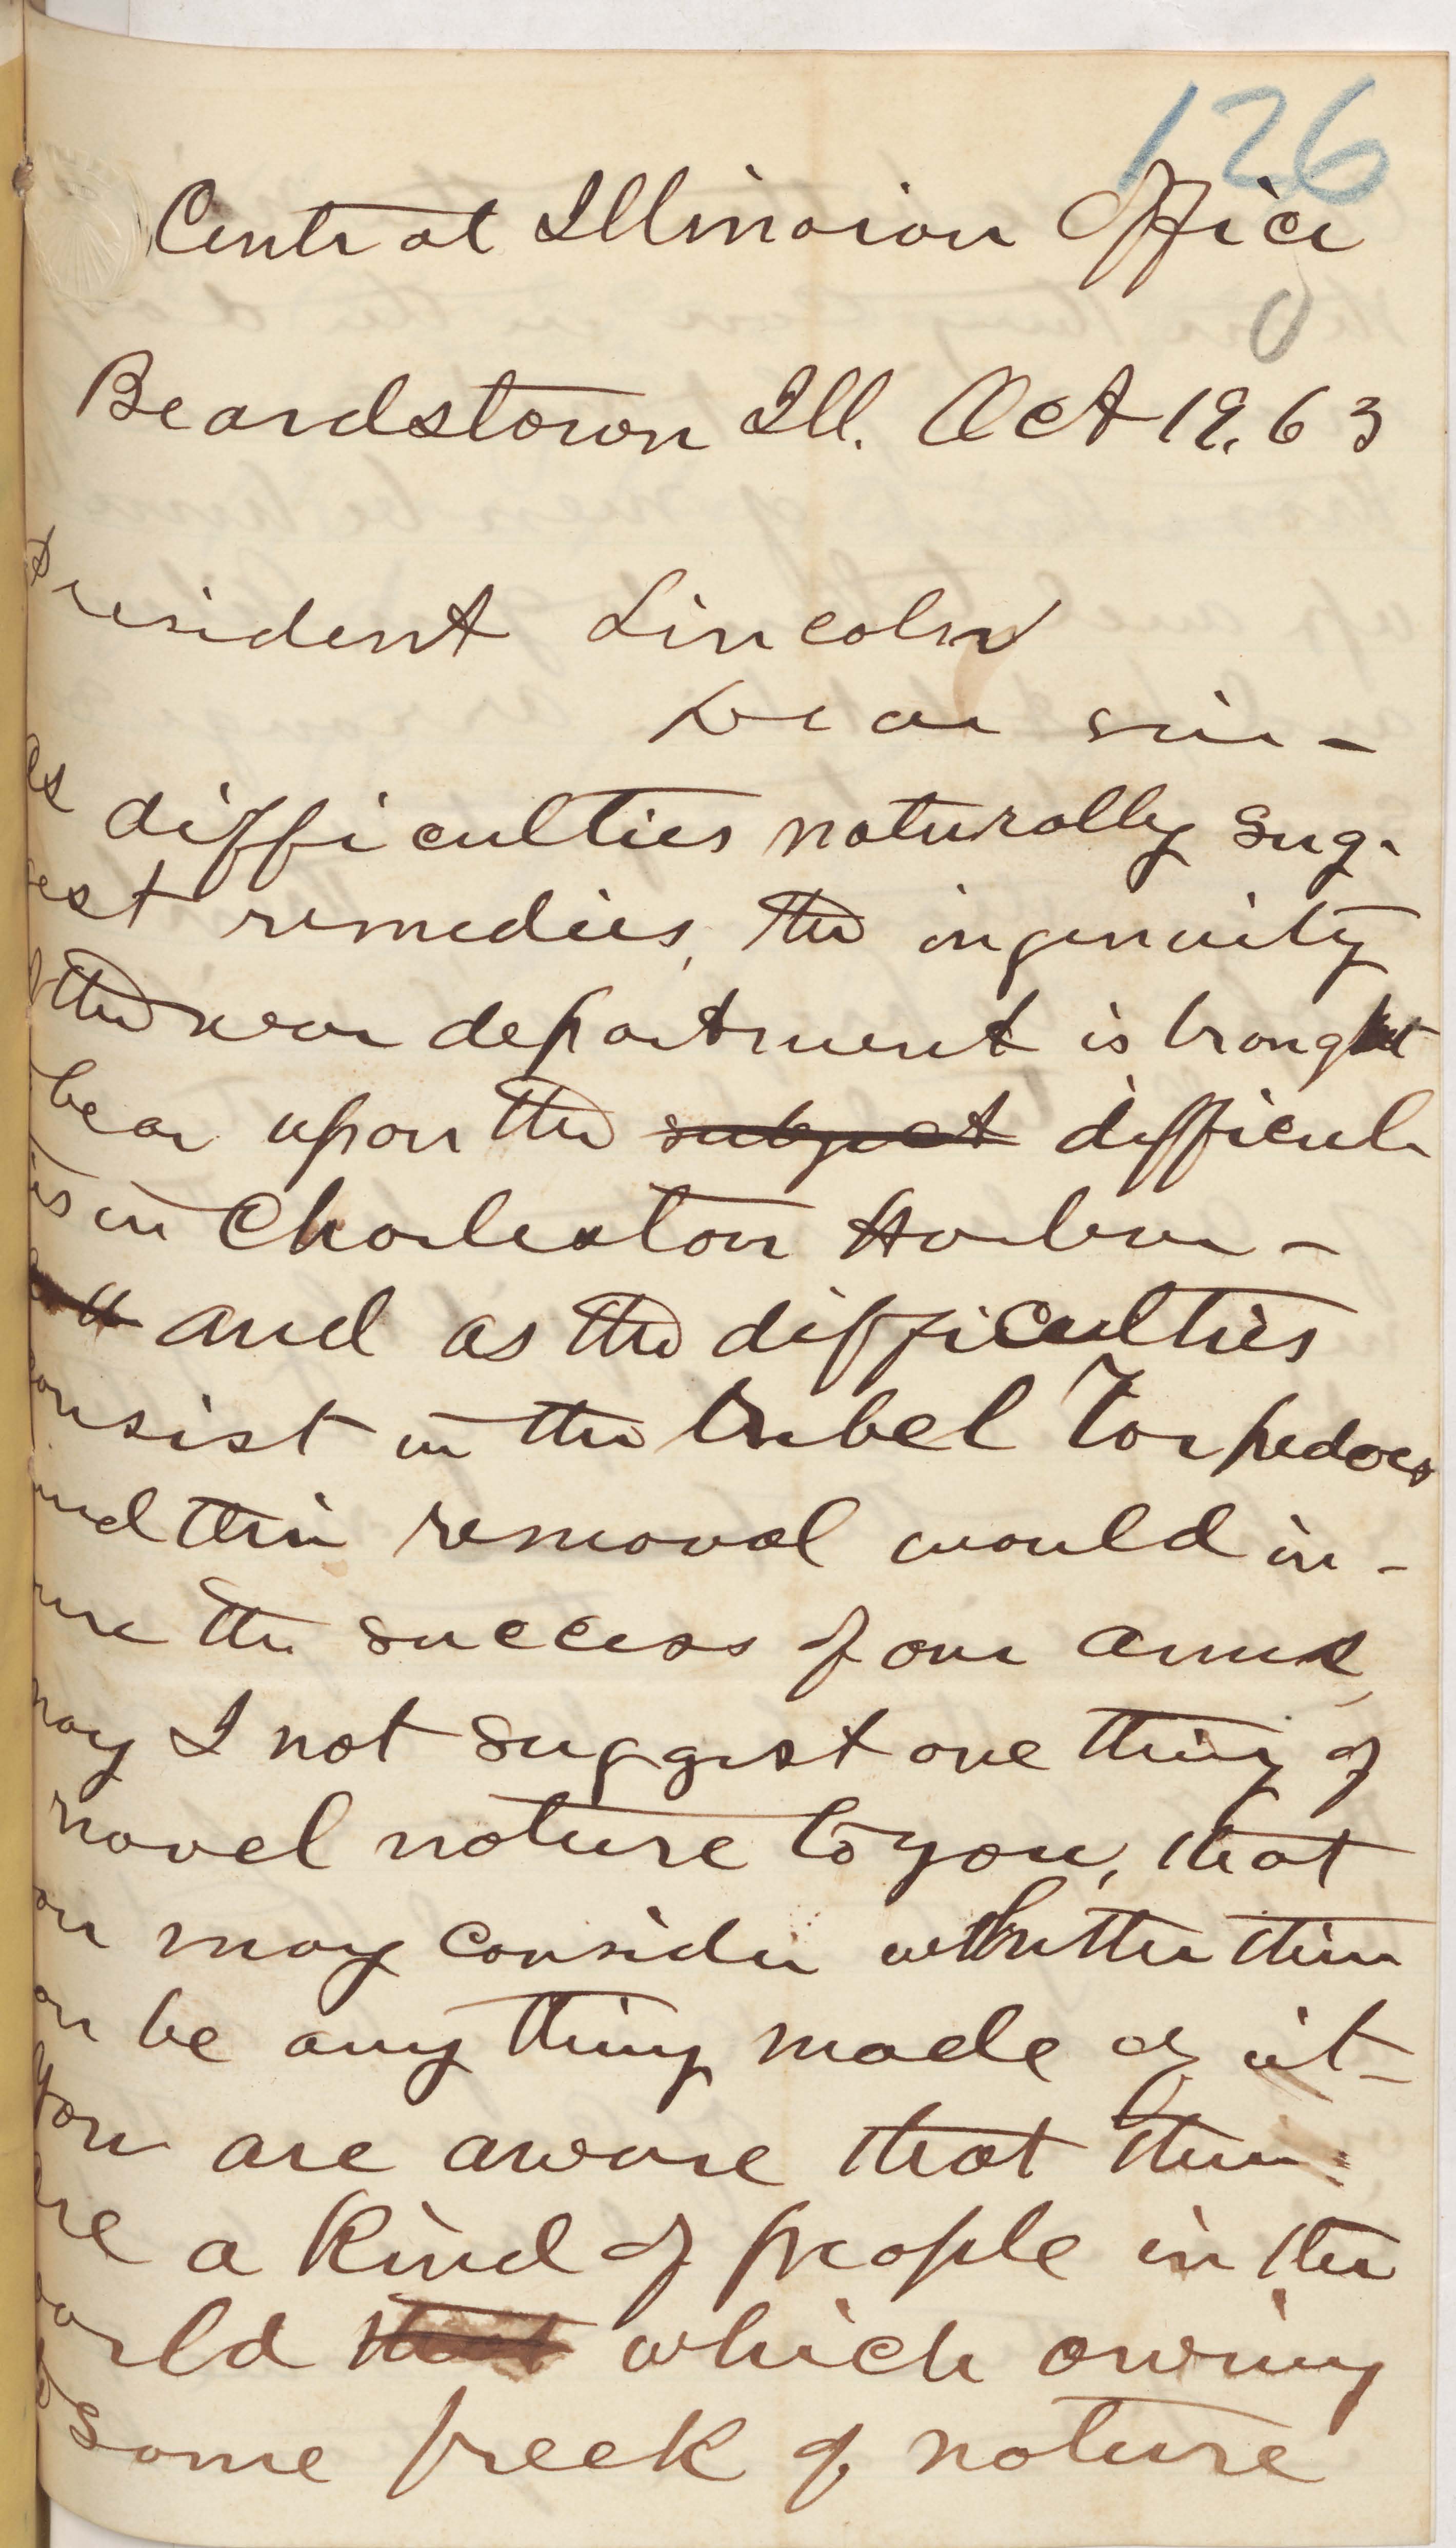 126
Central Illinoian Office
0
Beardstown Ill. Oct 19. 63
President Lincoln
Dear sir -
As difficulties naturally sug-
gest remedies, the ingenuity
of the war department is brought
bear upon the subject difficul
ties in Charleston Harbor -
and as the difficulties
consist in the Rebel Torpedoes
and their removal would in -
sure the success of our arms,
may I not suggest one thing of
novel nature to you, that
you may consider whether there
can be any thing made of it -
You are aware that there
are a kind of people in the
world that which owing
to some freek of nature